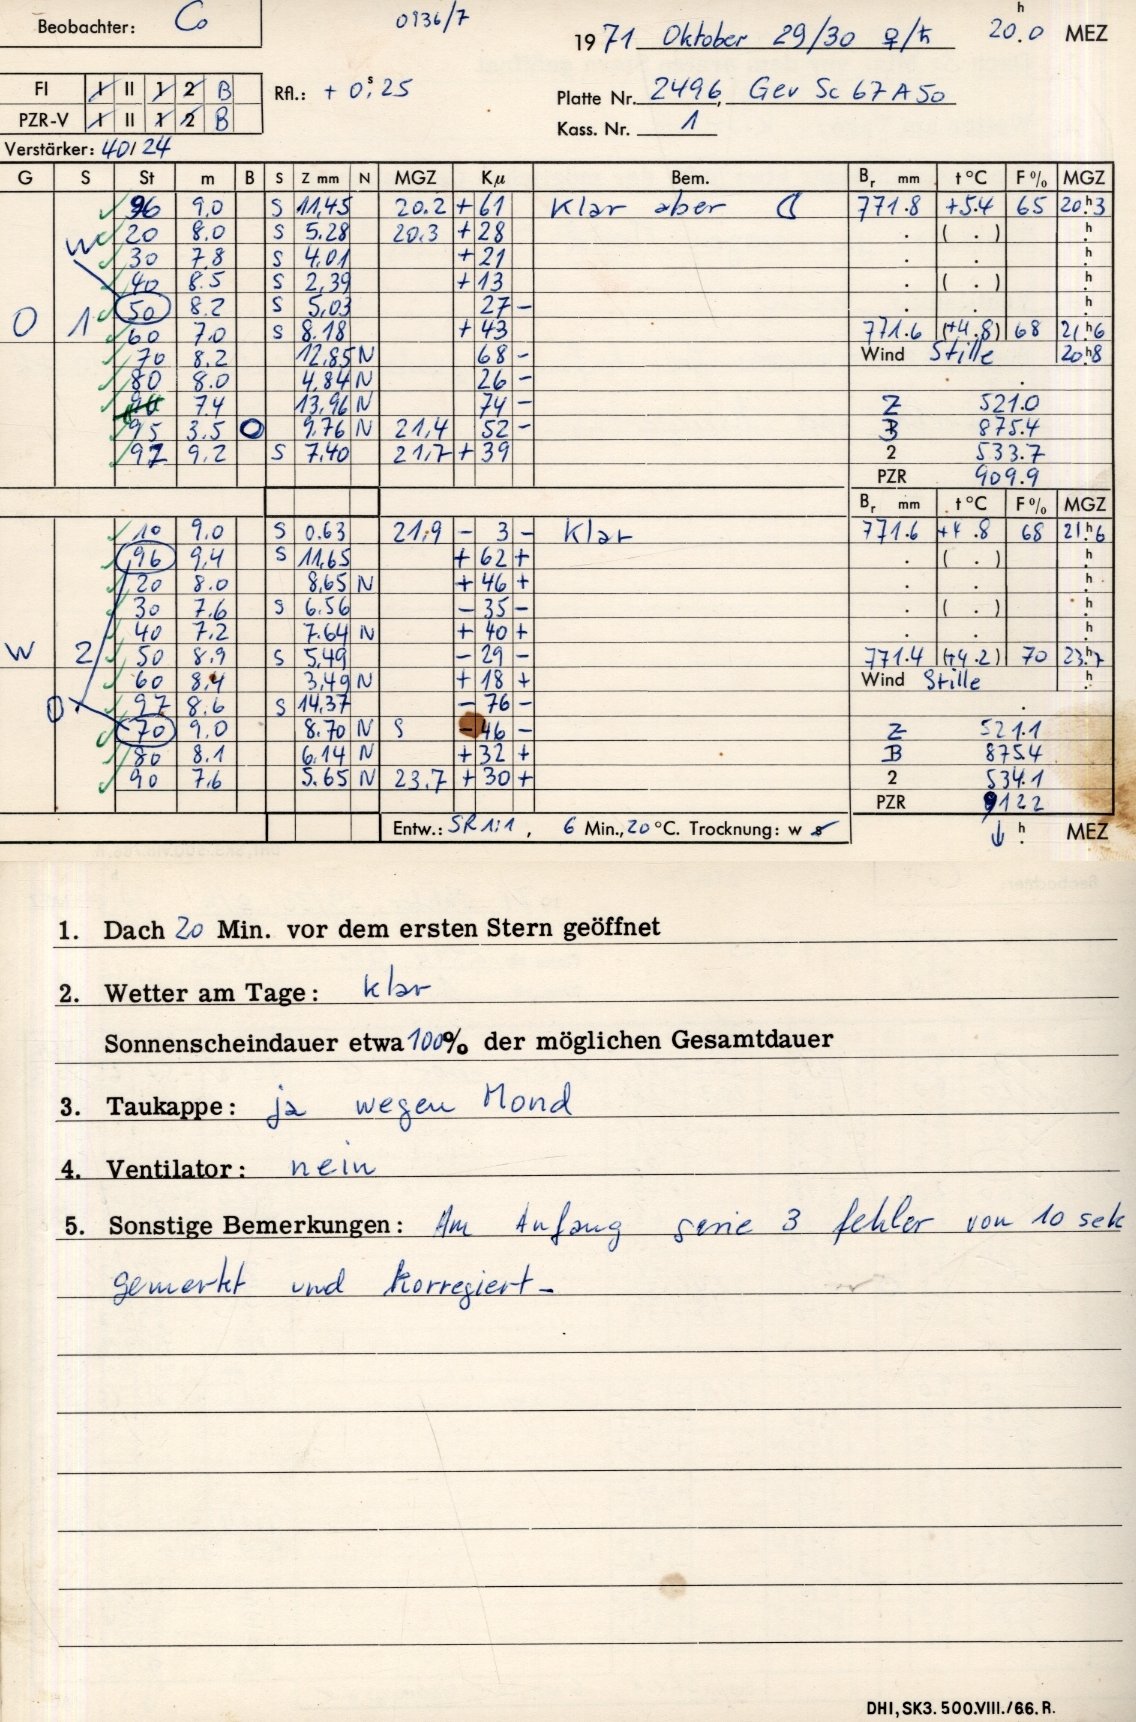 Beobachter: Co
0136/7
1971 Oktober 29/30 ♀/♄ 20.0 h MEZ
FI 1 II 1 2 B Rfl.: + 0.s25
PZR-V 1 II 1 2 B
Platte Nr. 2496, Gev Sc 67 A 50
Kass. Nr. 1
Verstärker: 40/24
G S St m B S Z mm N MGZ Kµ Bem. Br mm t °C F % MGZ
96 9,0 S 11,45 20.2 + 61 Klar aber ☾ 771.8 +5.4 65 20.h3
W 20 8.0 S 5.28 20.3 + 28 . ( . ) h
30 7.8 S 4.01 + 21 . . h
40 8.5 S 2,39 + 13 . ( . ) h
O 1 50 8.2 S 5,03 27 - . . h
60 7.0 S 8.18 + 43 771.6 (+4.8) 68 21.h6
70 8.2 12,85 N 68 - Wind Stille 20.h8
80 8.0 4,84 N 26 -
90 7.4 13,96 N 74 - Z 521.0
95 3.5 O 9.76 N 21,4 52 - B 875.4
97 9,2 S 7,40 21,7 + 39 2 533.7
PZR 909.9
Br mm t °C F % MGZ
10 9,0 S 0.63 21,9 - 3 - Klar 771.6 +4.8 68 21.h6
96 9,4 S 11,65 + 62 + . ( . ) h
20 8.0 8,65 N + 46 + . . h
30 7.6 S 6.56 - 35 - . ( . ) h
40 7.2 7.64 N + 40 + . . h
W 2 50 8.9 S 5,49 - 29 - 771.4 (+4.2) 70 23.h7
60 8,4 3,49 N + 18 + Wind Stille h
O 97 8.6 S 14,37 - 76 -
70 9,0 8.70 N S - 46 - Z 521.1
80 8.1 6.14 N + 32 + B 875.4
90 7,6 5.65 N 23.7 + 30 + 2 534.1
PZR 9122
Entw.: SR 1:1, 6 Min., 20 °C. Trocknung: w s ↓ h MEZ
1. Dach 20 Min. vor dem ersten Stern geöffnet
2. Wetter am Tage: klar
Sonnenscheindauer etwa 100% der möglichen Gesamtdauer
3. Taukappe: ja wegen Mond
4. Ventilator: nein
5. Sonstige Bemerkungen: Am Anfang serie 3 fehler von 10 sek
gemerkt und korregiert -
DHI, SK3. 500.VIII./66. R.